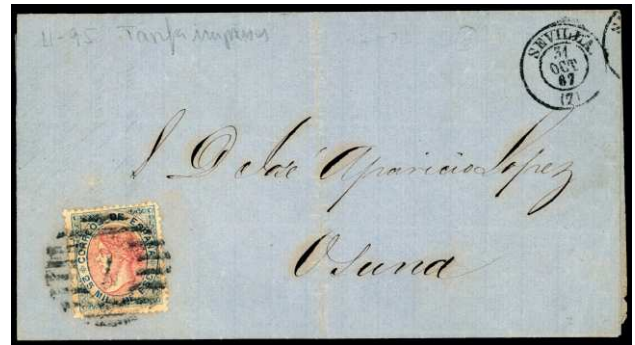 11-95 Tarifa impresos
SEVILLA
31
OCT
67
(7)
S. D. José Aparicio López
Osuna
CORREOS DE ESPAÑA
25 MIL